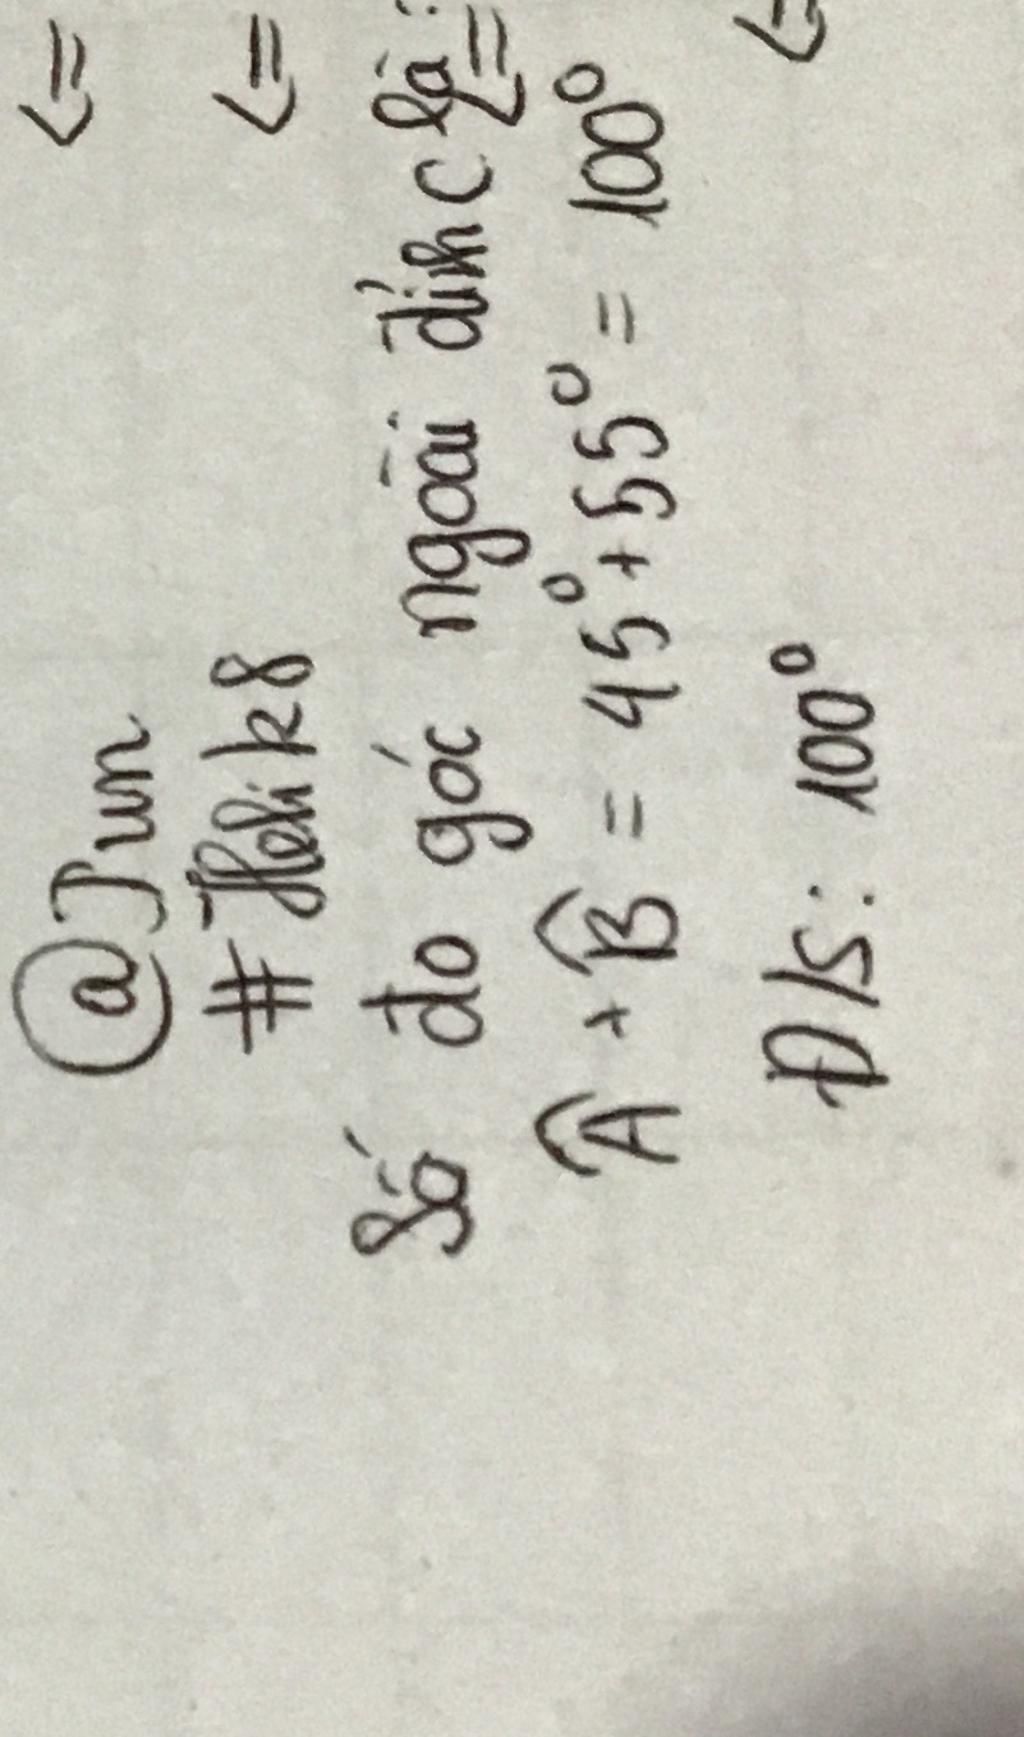 @Jun
# Heli k8
Số đo góc ngoài đỉnh C là:
Â + B̂ = 45⁰ + 55⁰ = 100⁰
Đ/S: 100⁰